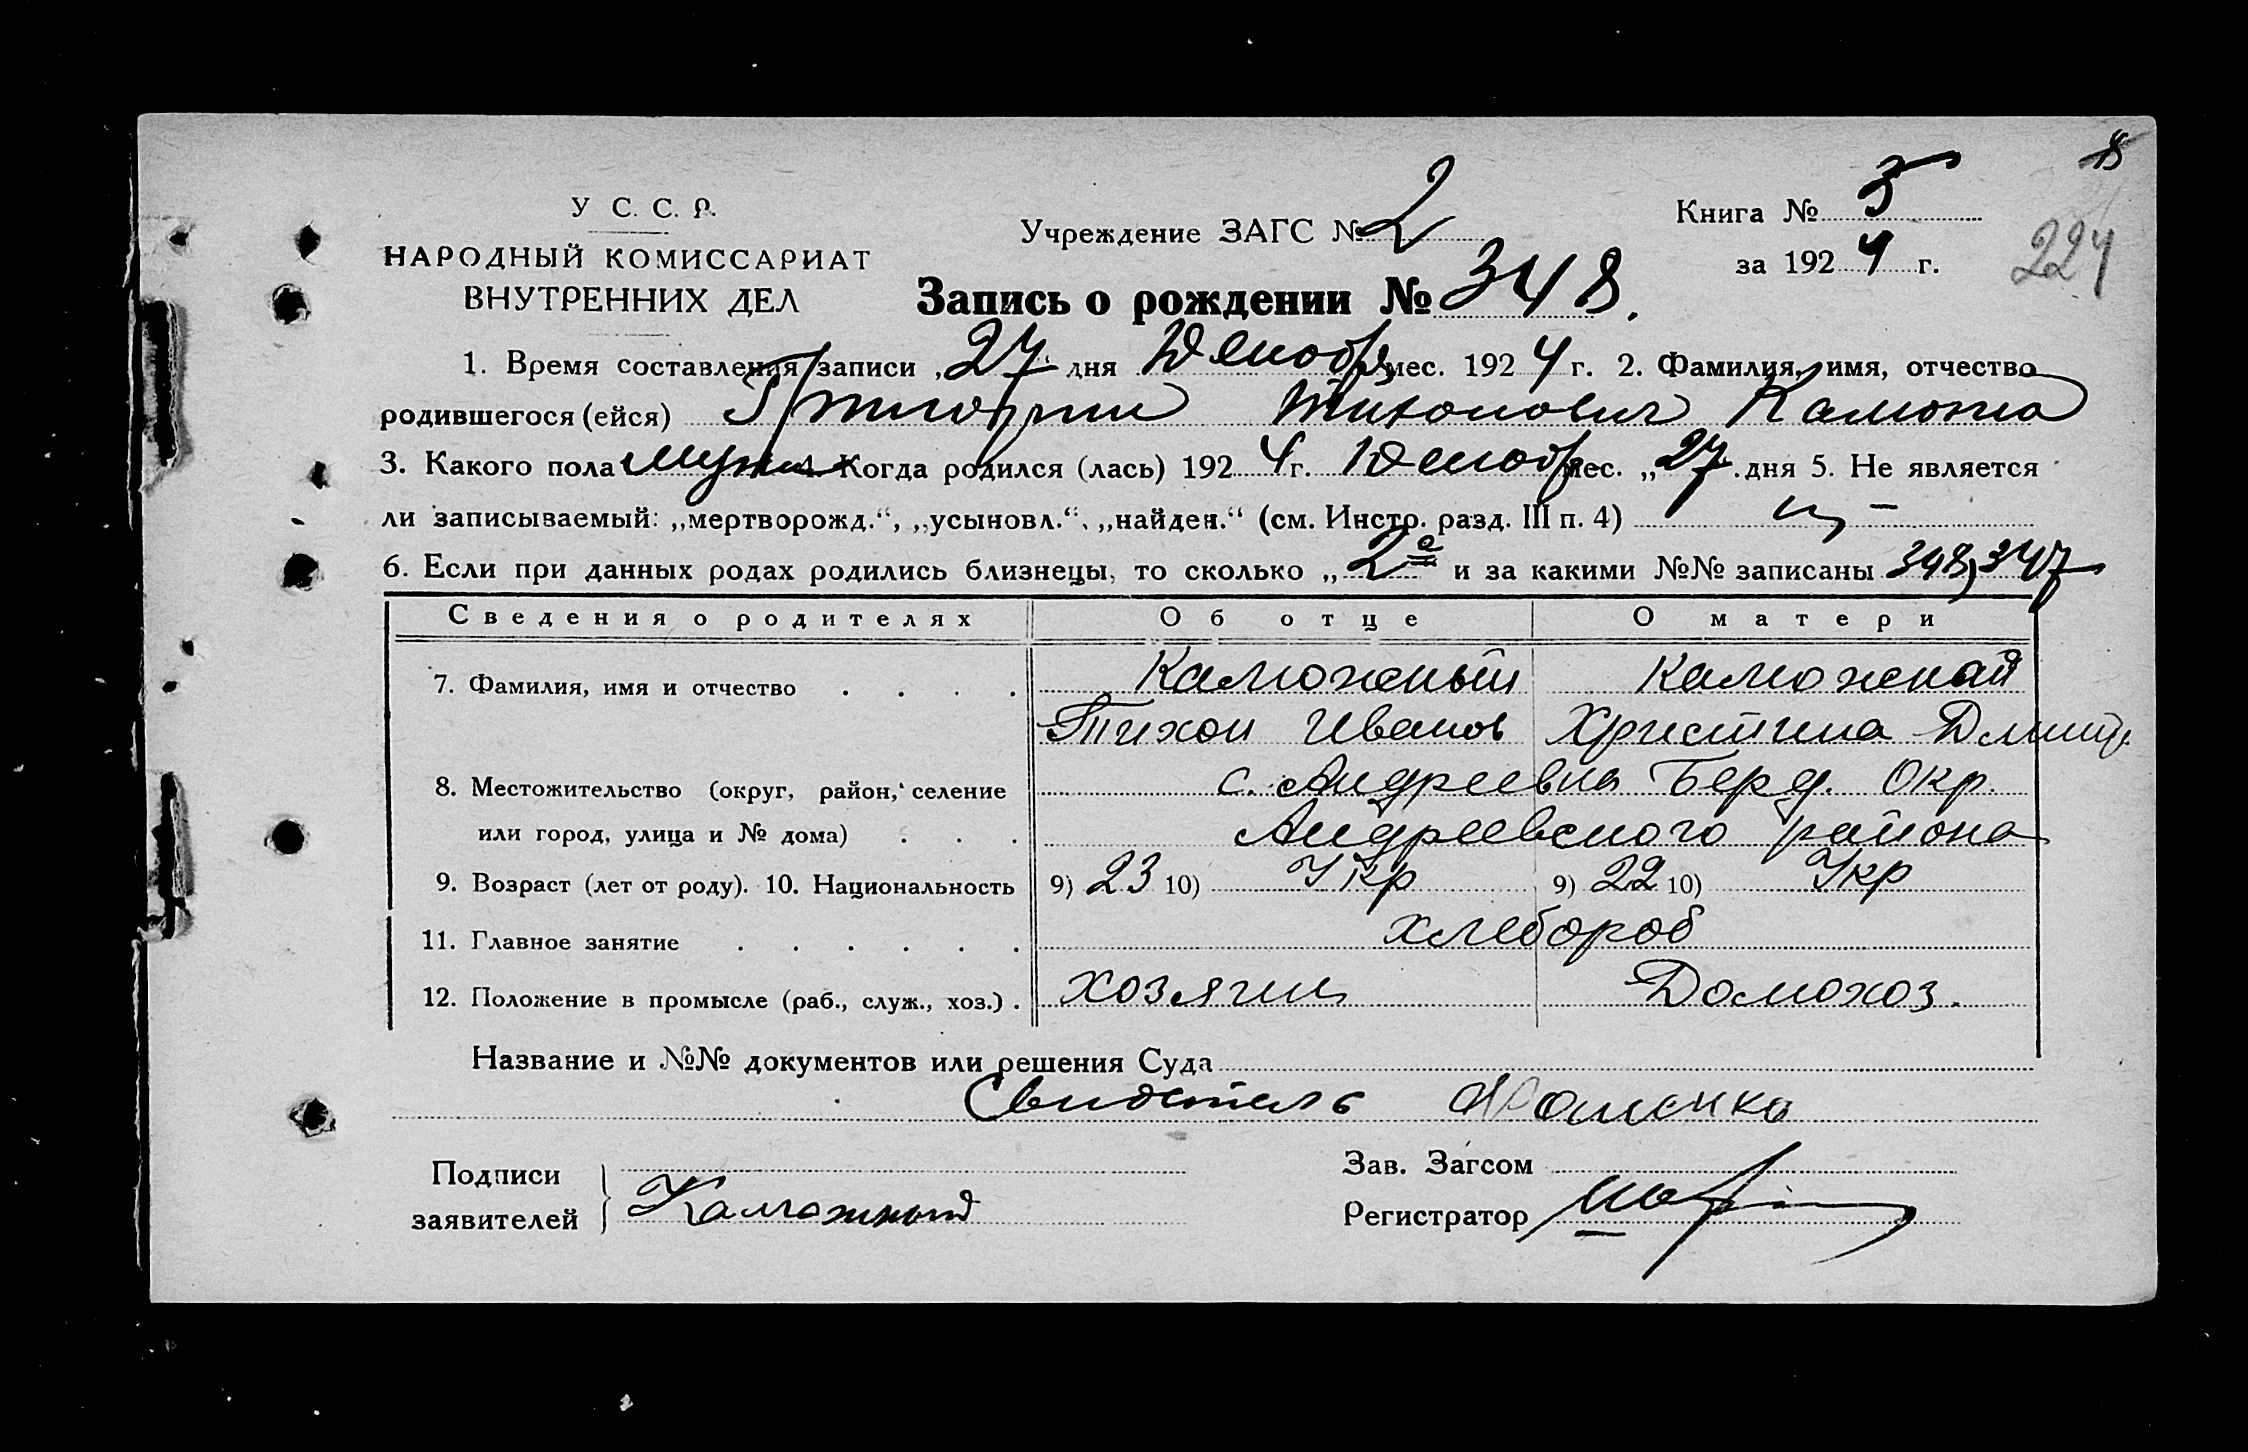 8
У С. С. Р.
НАРОДНЫЙ КОМИССАРИАТ
ВНУТРЕННИХ ДЕЛ
Учреждение ЗАГС № 2
Книга № 5
за 1924 г.
224
Запись о рождении № 348.
1. Время составления записи „27" дня Декабр мес. 1924 г. 2. Фамилия, имя, отчество
родившегося (ейся) Григорий Тихонович Калюжн
3. Какого пола муж 4. Когда родился (лась) 1924 г. Декабр мес. „27" дня 5. Не является
ли записываемый: „мертворожд.“, „усыновл.“, „найден.“ (см. Инстр. разд. III п. 4)
6. Если при данных родах родились близнецы, то сколько „2е и за какими №№ записаны 348, 347
Сведения о родителях Об отце О матери
7. Фамилия, имя и отчество . . . . Калюжный Калюжная
Тихон Иванов Христина Дмитр.
8. Местожительство (округ, район, селение с. Андреевка Берд. Окр.
или город, улица и № дома) . . . Андреевского района
9. Возраст (лет от роду). 10. Национальность 9) 23 10) Укр 9) 22 10) Укр
11. Главное занятие . . . . . . хлебороб
12. Положение в промысле (раб., служ., хоз.) . хозяин Домохоз.
Название и №№ документов или решения Суда
Свидетель
Подписи
заявителей
Калюжный
Зав. Загсом
Регистратор